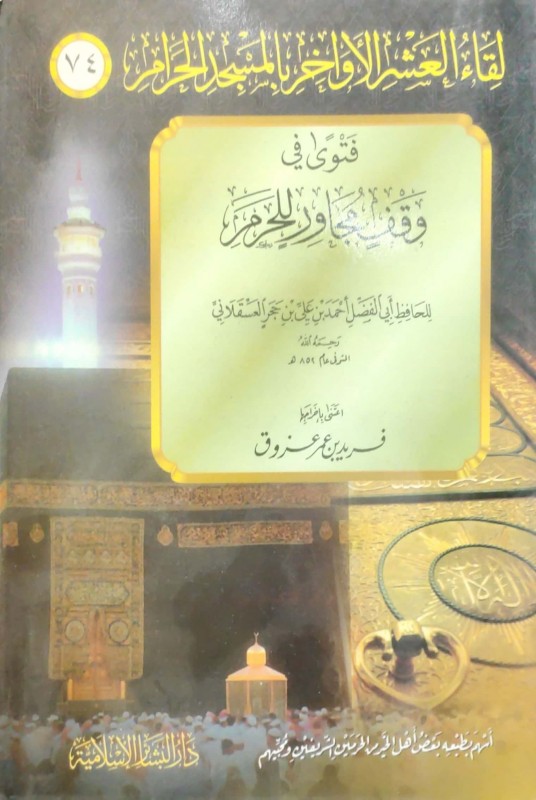 لِقَاءُ العَشْرِ الأَوَاخِرِ بِالمَسْجِدِ الحَرَامِ
٧٤
فَتْوَى فِي
وَقْفٍ مُجَاوِرٍ لِلْحَرَمِ
لِلحَافِظِ أَبِي الفَضْلِ أَحْمَدَ بْنِ عَلِيِّ بْنِ حَجَرٍ العَسْقَلَانِيِّ
رَحِمَهُ اللهُ
المتوفى عام ٨٥٢ هـ
اعتنى بإخراجها
فريد بن عمر عزوق
أَسْهَمَ بِطَبْعِهِ بَعْضُ أَهْلِ الخَيْرِ مِنَ الحَرَمَيْنِ الشَّرِيفَيْنِ وَمُحِبِّيهِمْ
دَارُ البَشَائِرِ الإِسْلَامِيَّةِ